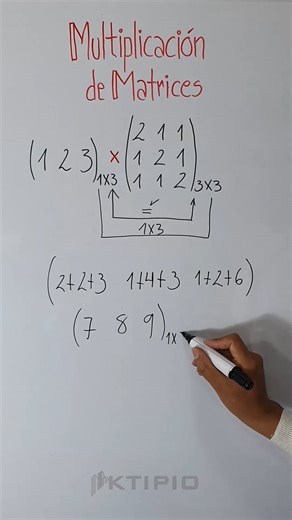 Multiplicación
de Matrices
(1 2 3)1x3 x (2 1 1
1 2 1
1 1 2)3x3
=
1x3
(2+2+3 1+4+3 1+2+6)
(7 8 9)1x
KTIPIO